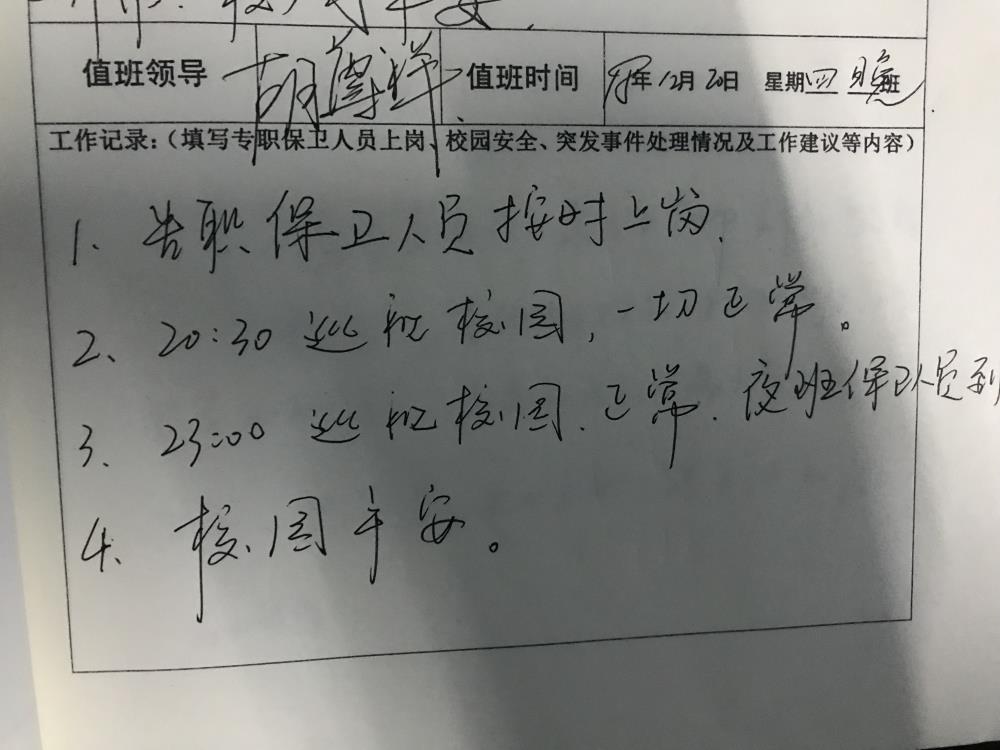 校园平安.
值班领导 胡尊祥 值班时间 18年12月20日 星期四 晚班
工作记录:(填写专职保卫人员上岗、校园安全、突发事件处理情况及工作建议等内容)
1. 专职保卫人员按时上岗.
2、20:30 巡视校园,一切正常。
3、23:00 巡视校园.正常.夜班保卫人员到
4、校园平安。